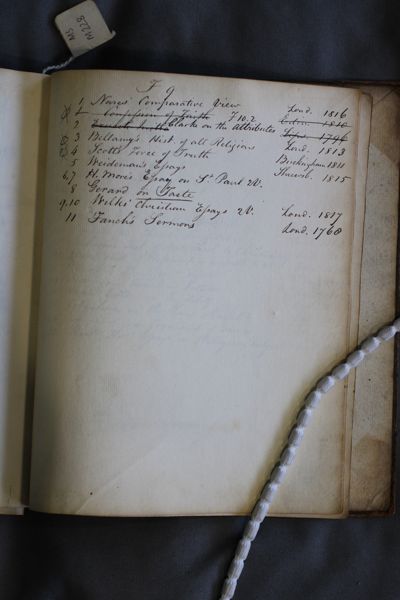 MS
M228
F 9
1 Nares' Comparative View Lond. 1816
1 Confession of Faith F 10.2 Edin.
2 Clarke on the Attributes 1796
3 Bellamy's Hist. of all Religions Lond. 1813
4 Scott's Force of Truth Buckingham 1811
5 Weideman's Essays Shrewsb. 1815
6,7 H. More's Essay on St. Paul 2V.
8 Gerard on Taste
9.10 Wilks' Christian Essays 2V. Lond. 1817
11 Fanch's Sermons Lond. 1768